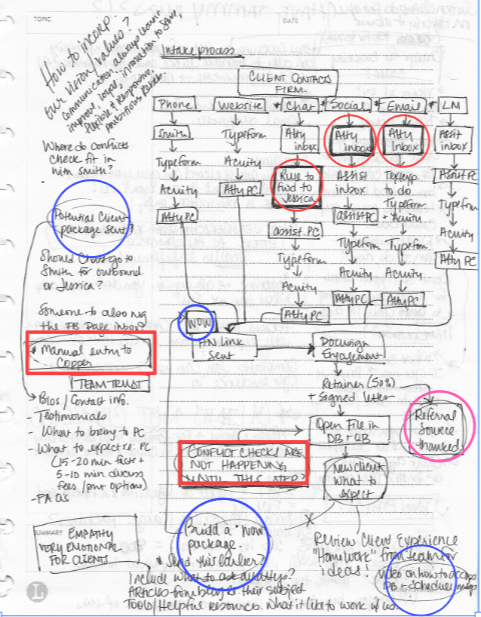 TOPIC
DATE
How to incorp.
our vision/values?
Intake process
CLIENT CONTACTS
FIRM.
Phone
Website
Chat
Social
Email
LM
Smith
Typeform
Atty
inbox
Atty
inbox
Atty
inbox
Asst
inbox
Where do conflicts
check fit in
with Smith?
Typeform
Acuity
Rule to
fwd to
Jessica
Assist
inbox
to do
Typeform
+ Acuity
Asst PC
Acuity
Atty PC
Typeform
Atty PC
assist. PC
assist PC
Typeform
Acuity
Typeform
Typeform
Acuity
Acuity
Acuity
Atty PC
Atty PC
Atty PC
Atty PC
Potential Client
package sent?
Should Chat go to
Smith for outbound
or Jessica?
Someone to also
the FB Page inbox?
* Manual entry to
Copper
TEAM TRUST
Bios / Contact info.
- Testimonials
- What to bring to PC
- What to expect re. PC
(15-20 min facts +
5-10 min discuss
fees / pmt options)
- FAQs
WOW
HN link
sent
Docusign
Engagement
Retainer (50%)
+ Signed letter
Open File in
DB + QB
Referral
Source
thanked
CONFLICT CHECKS ARE
NOT HAPPENING
UNTIL THIS STEP?
New client
What to
expect
Build a "wow"
package.
* Send this earlier?
SUMMARY
EMPATHY
VERY EMOTIONAL
FOR CLIENTS
Review Client Experience
"Homework" from
ideas!
Video on how to
DB + schedule
Include what to ask
Articles from blog re their subject
Tools/Helpful resources. What it like to work w us.
L